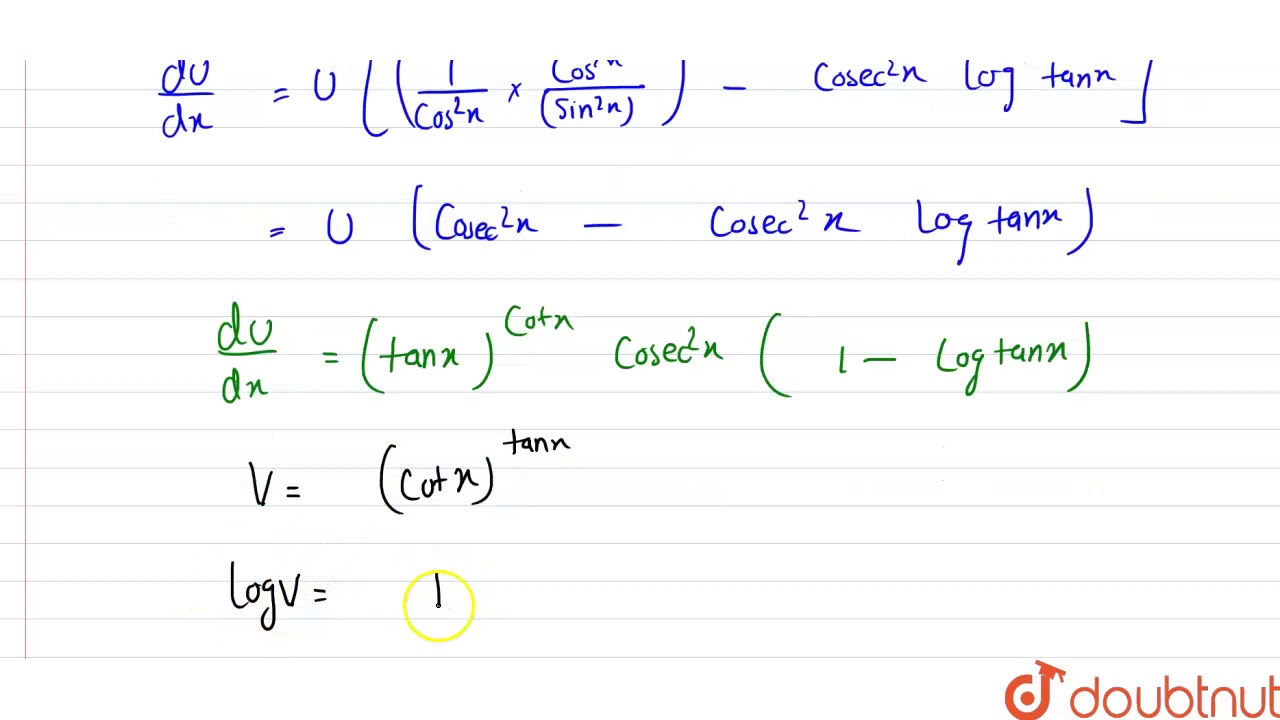 dU/dx = U [ ( 1/Cos²x × Cos²x/(Sin²x) ) - Cosec²x log tanx ]
= U (Cosec²x - Cosec²x log tanx)
dU/dx = (tanx)^Cotx Cosec²x ( 1 - log tanx)
V = (Cotx)^tanx
log V = l
doubtnut